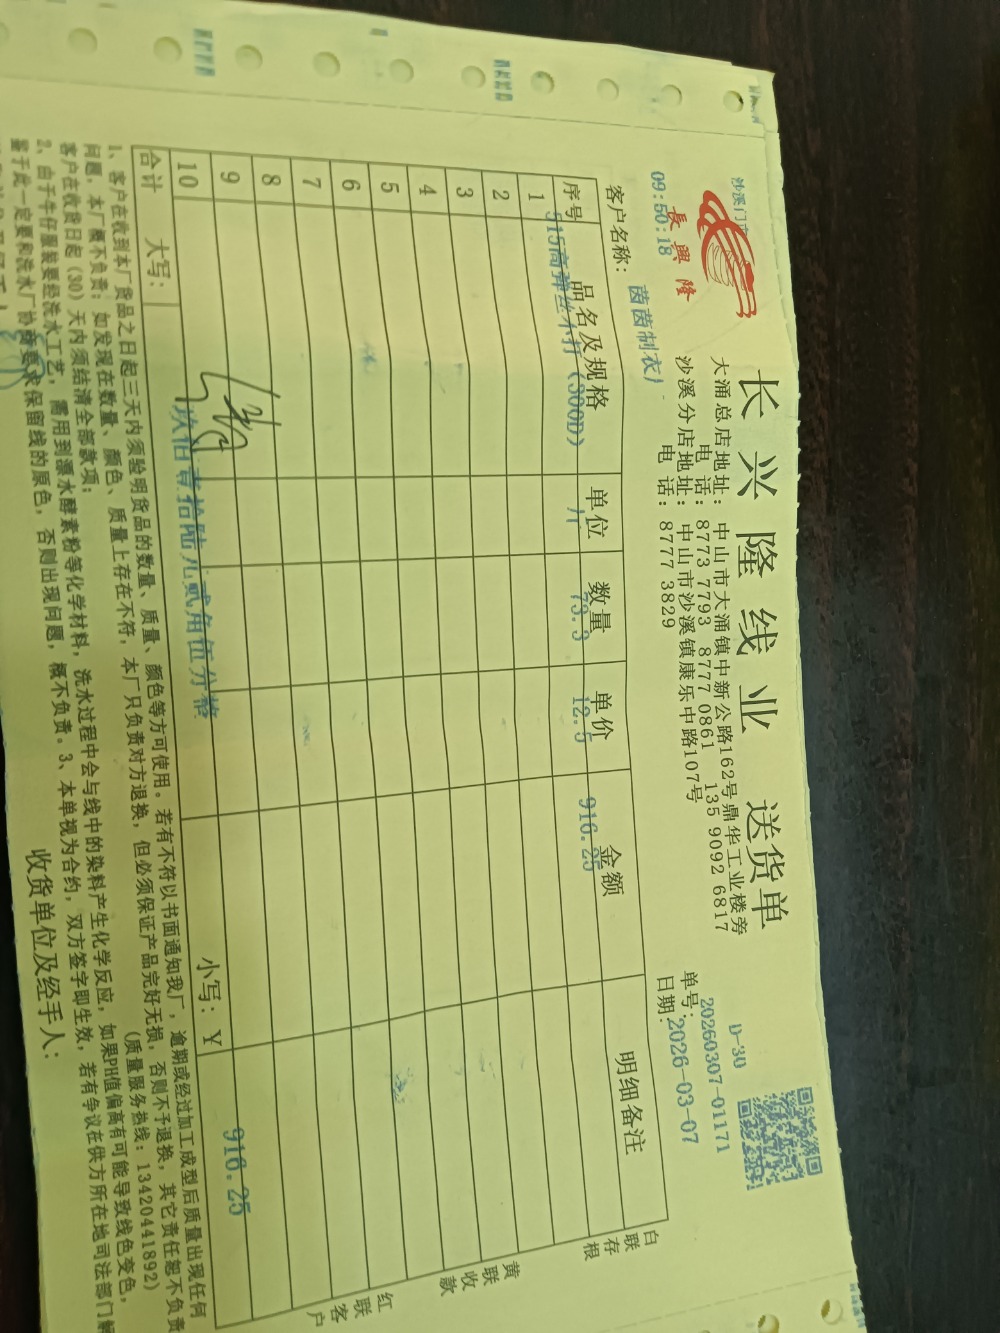 沙溪门
09:50:18
長興隆
长兴隆线业 送货单
大涌总店地址：中山市大涌镇中新公路162号鼎华工业楼旁
电 话：8773 7793 8777 0861 135 9092 6817
沙溪分店地址：中山市沙溪镇康乐中路107号
电 话：8777 3829
D-30
单号：20260307-01171
日期：2026-03-07
客户名称：茵茵制衣厂
序号 品名及规格 单位 数量 单价 金额 明细备注
1 515高弹丝不打（300D） 73.3 12.5 916.25
2
3
4
5
6
7
8
9
10
合计 大写：玖佰壹拾陆元贰角伍分整 小写：￥ 916.25
白联存根
黄联收款
红联客户
1、客户在收到本厂货品之日起三天内须验明货品的数量、质量、颜色等方可使用。若有不符以书面通知我厂，逾期或经过加工成型后质量出现任何
问题，本厂概不负责；如发现在数量、颜色、质量上存在不符，本厂只负责对方退换，但必须保证产品完好无损，否则不予退换，其它责任恕不负责
客户在收货日起（30）天内须结清全部款项； （质量服务热线：13420441892）
2、由于牛仔服装要经洗水工艺，需用到漂水酵素粉等化学材料，洗水过程中会与线中的染料产生化学反应，如果PH值偏高有可能导致线色变色，
鉴于此一定要和洗水厂协商要求保留线的原色，否则出现问题，概不负责。3、本单视为合约，双方签字即生效，若有争议在供方所在地司法部门解
收货单位及经手人：